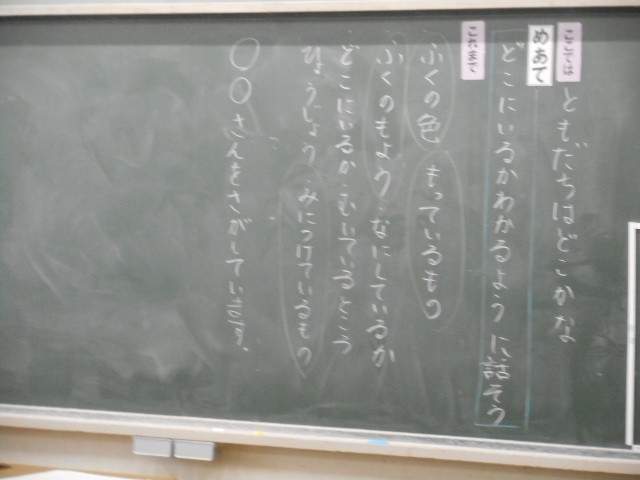 ここでは
ともだちはどこかな
めあて
どこにいるかわかるように話そう
これまで
ふくの色 もっているもの
ふくのもよう・なにしているか
どこにいるか・むいているところ
ひょうじょう・みにつけているもの
○○さんをさがしています。